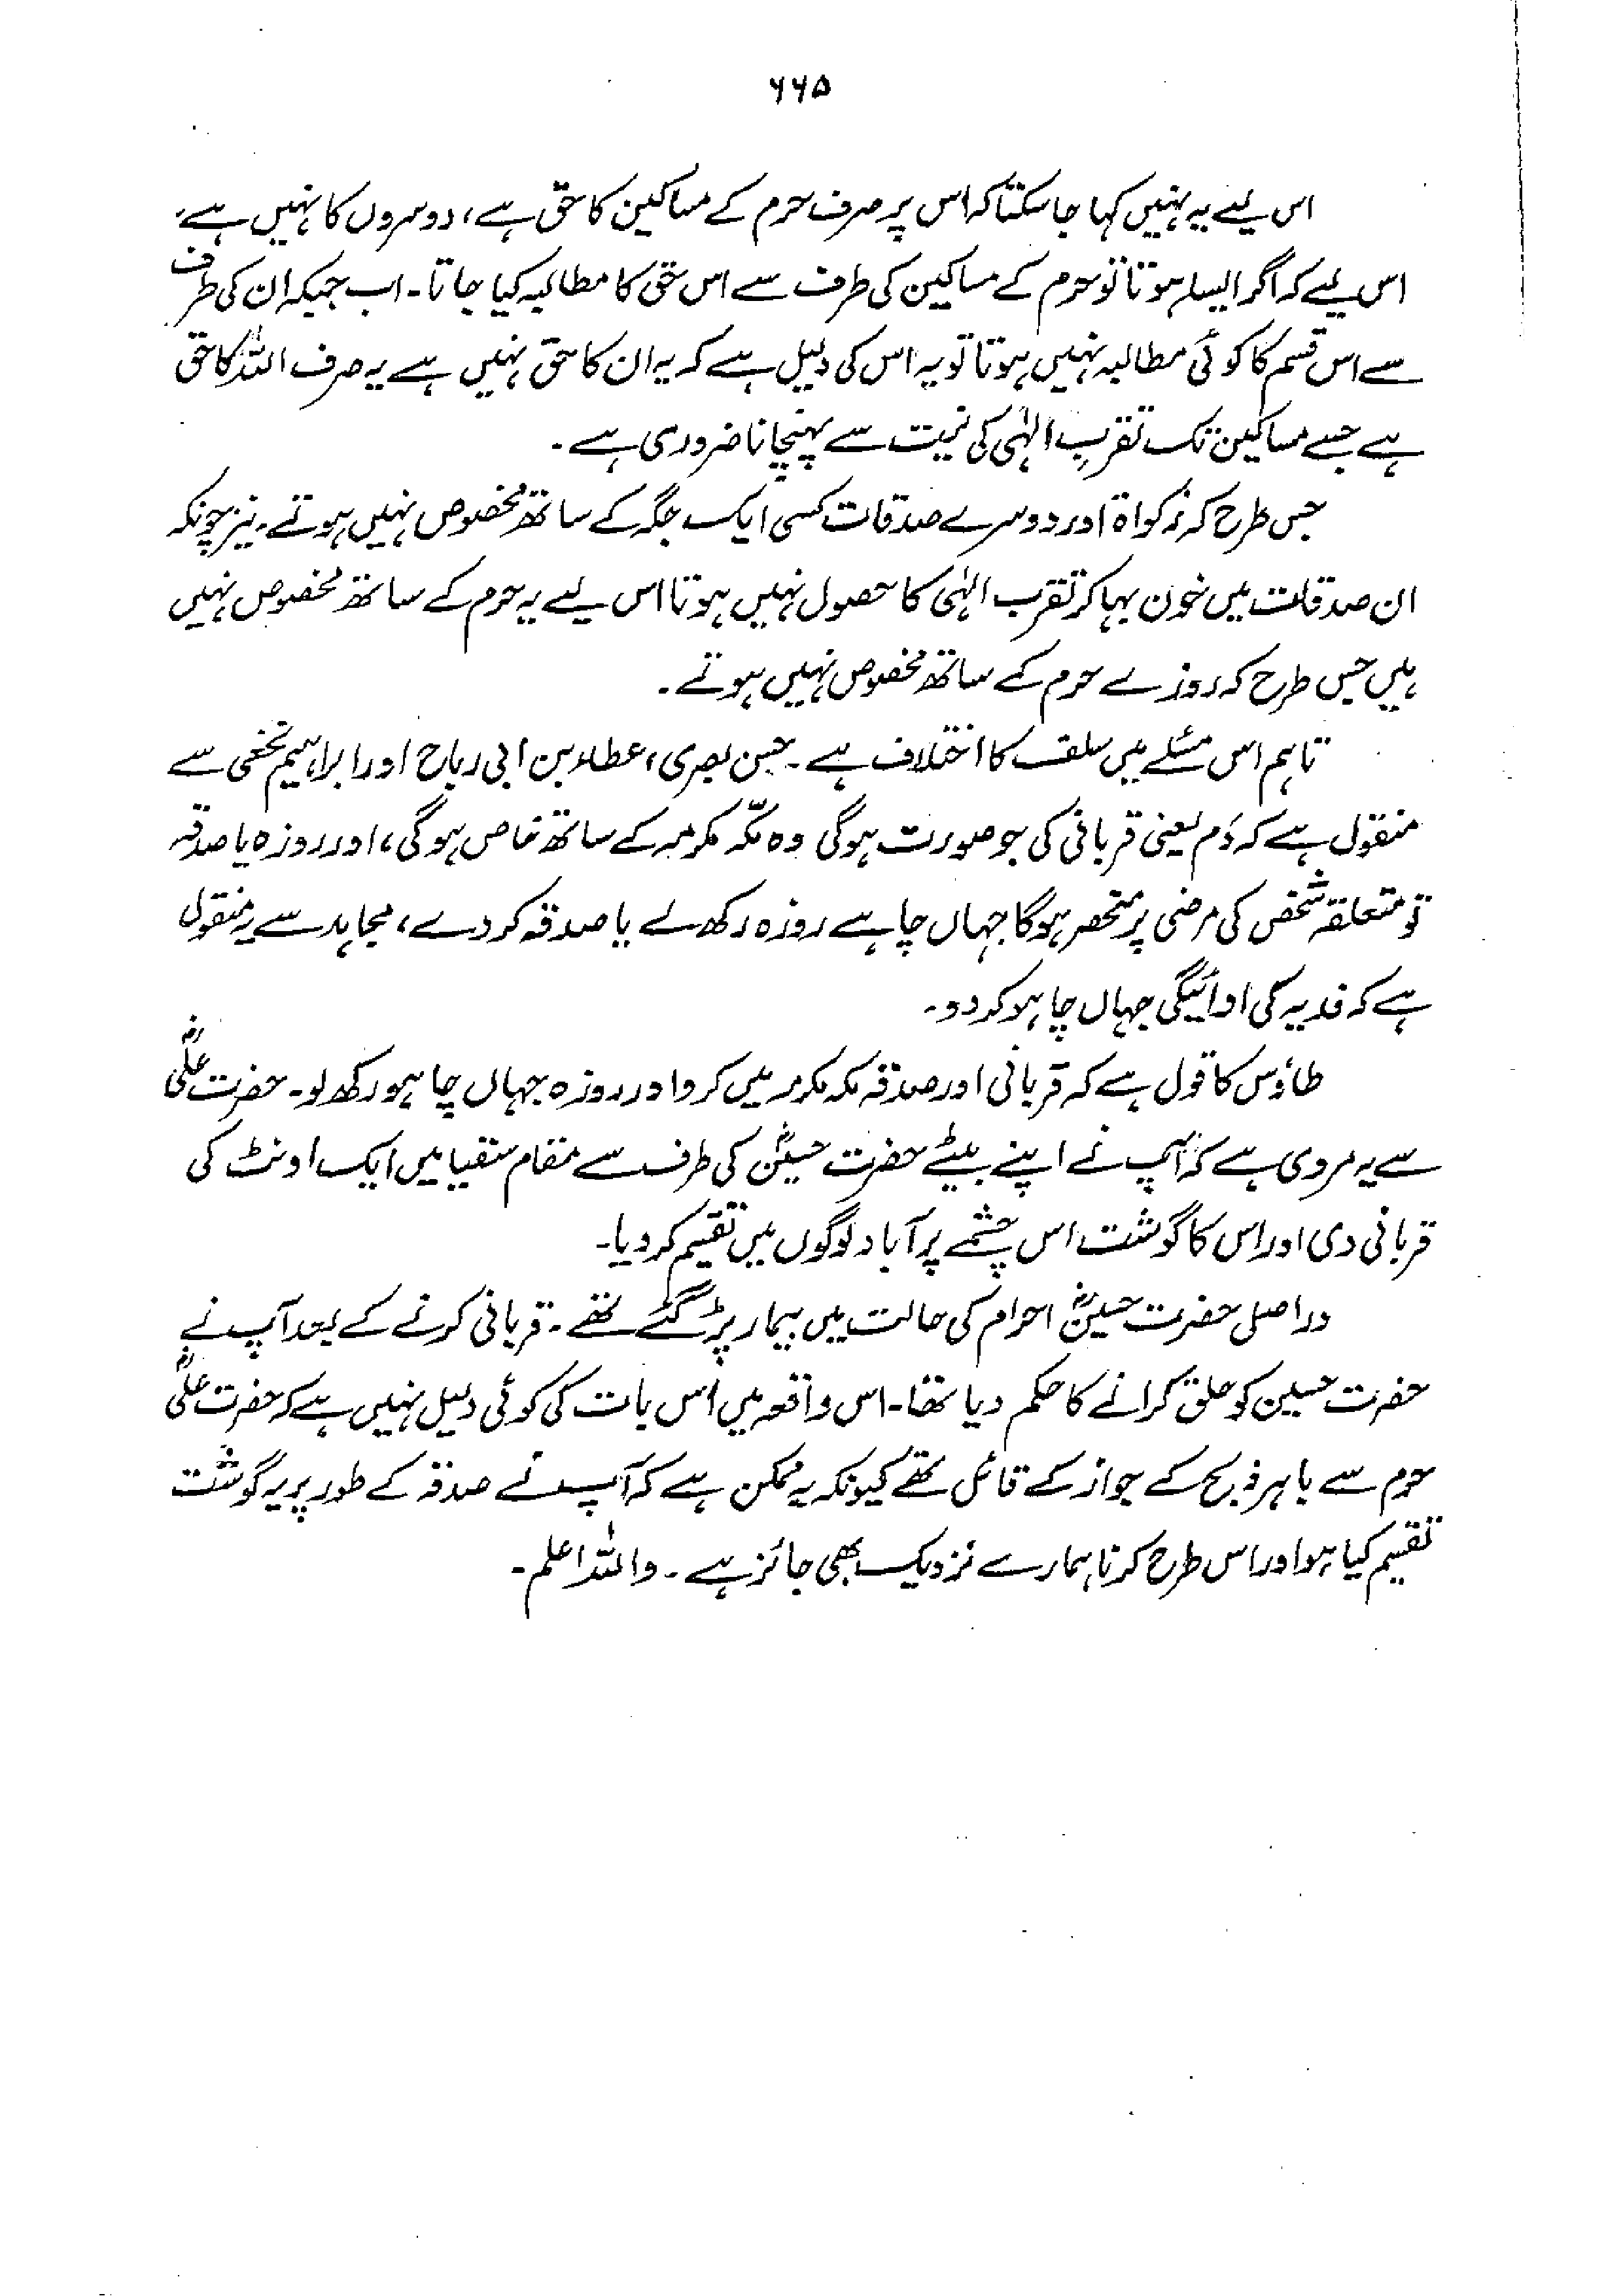 ۶۶۵
اس لیے یہ نہیں کہا جا سکتا کہ اس پر صرف حرم کے مساکین کا حق ہے، دوسروں کا نہیں ہے،
اس لیے کہ اگر ایسا ہوتا تو حرم کے مساکین کی طرف سے اس حق کا مطالبہ کیا جاتا۔ اب جبکہ ان کی طرف
سے اس قسم کا کوئی مطالبہ نہیں ہوتا تو یہ اس کی دلیل ہے کہ یہ ان کا حق نہیں ہے یہ صرف اللہ کا حق
ہے جسے مساکین تک تقربِ الہٰی کی نیت سے پہنچانا ضروری ہے۔
جس طرح کہ زکواۃ اور دوسرے صدقات کسی ایک جگہ کے ساتھ مخصوص نہیں ہوتے۔ نیز چونکہ
ان صدقات میں خون بہا کر تقرب الہٰی کا حصول نہیں ہوتا اس لیے یہ حرم کے ساتھ مخصوص نہیں
ہیں جس طرح کہ روزے حرم کے ساتھ مخصوص نہیں ہوتے۔
تاہم اس مسئلے میں سلف کا اختلاف ہے۔ حسن بصری، عطاء بن ابی رباح اور ابراہیم نخعی سے
منقول ہے کہ دَم یعنی قربانی کی جو صورت ہوگی وہ مکّہ مکرمہ کے ساتھ خاص ہوگی، اور روزہ یا صدقہ
تو متعلقہ شخص کی مرضی پر منحصر ہوگا جہاں چاہے روزہ رکھ لے یا صدقہ کر دے، مجاہد سے یہ منقول
ہے کہ فدیہ کی ادائیگی جہاں چاہو کر دو۔
طاؤس کا قول ہے کہ قربانی اور صدقہ مکہ مکرمہ میں کرو اور روزہ جہاں چاہو رکھ لو۔ حضرت علیؓ
سے یہ مروی ہے کہ آپ نے اپنے بیٹے حضرت حسینؓ کی طرف سے مقام سقیا میں ایک اونٹ کی
قربانی دی اور اس کا گوشت اس چشمے پر آباد لوگوں میں تقسیم کر دیا۔
در اصل حضرت حسینؓ احرام کی حالت میں بیمار پڑ گئے تھے۔ قربانی کرنے کے بعد آپ نے
حضرت حسین کو حلق کرانے کا حکم دیا تھا۔ اس واقعہ میں اس بات کی کوئی دلیل نہیں ہے کہ حضرت علیؓ
حرم سے باہر ذبح کے جواز کے قائل تھے کیونکہ یہ ممکن ہے کہ آپ نے صدقہ کے طور پر یہ گوشت
تقسیم کیا ہو اور اس طرح کرنا ہمارے نزدیک بھی جائز ہے۔ واللہ اعلم۔